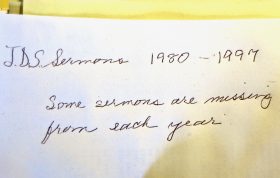 J.D.S. Sermons 1980 - 1997
Some sermons are missing
from each year